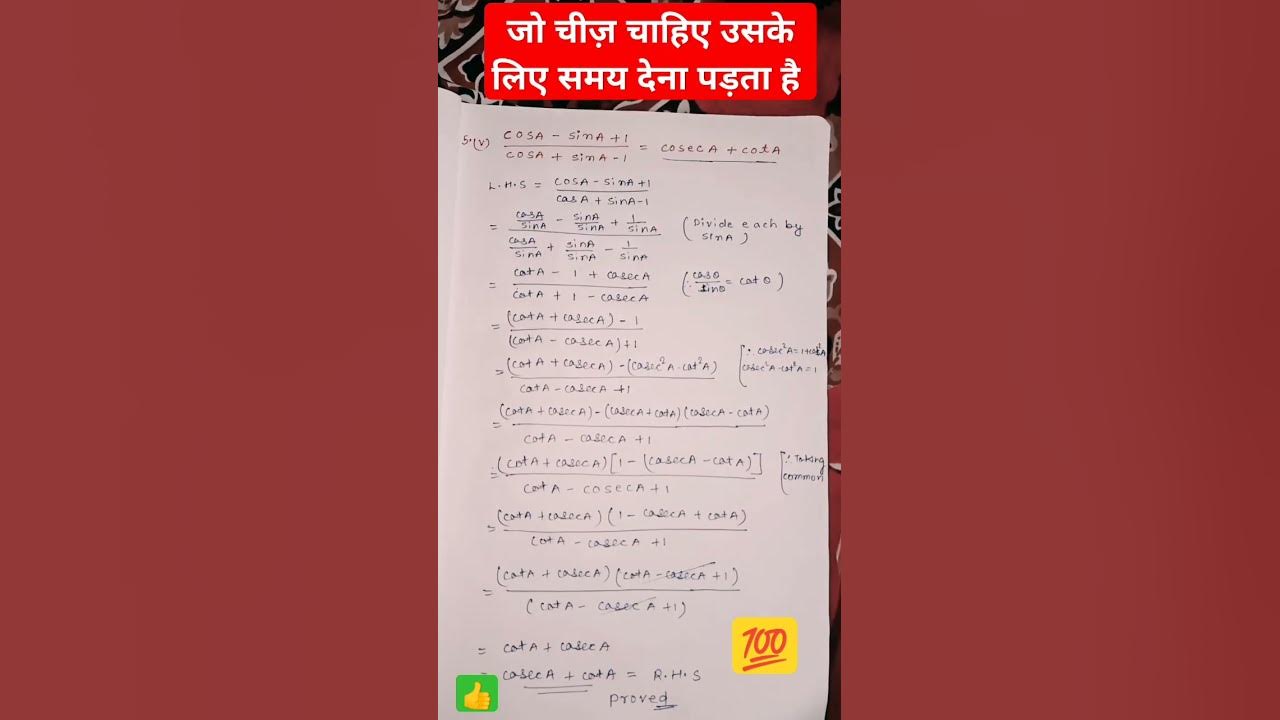 जो चीज़ चाहिए उसके
लिए समय देना पड़ता है
5.(v) (cosA - sinA + 1)/(cosA + sinA - 1) = cosecA + cotA
L.H.S = (cosA - sinA + 1)/(cosA + sinA - 1)
= (cosA/sinA - sinA/sinA + 1/sinA)/(cosA/sinA + sinA/sinA - 1/sinA) (Divide each by sinA)
= (cotA - 1 + cosecA)/(cotA + 1 - cosecA) (∵ cosθ/sinθ = cotθ)
= ((cotA + cosecA) - 1)/((cotA - cosecA) + 1)
= ((cotA + cosecA) - (cosec²A - cot²A))/(cotA - cosecA + 1) [∵ cosec²A = 1 + cot²A
cosec²A - cot²A = 1
= ((cotA + cosecA) - (cosecA + cotA)(cosecA - cotA))/(cotA - cosecA + 1)
= ((cotA + cosecA)[1 - (cosecA - cotA)])/(cotA - cosecA + 1) [∵ Taking common
= ((cotA + cosecA)(1 - cosecA + cotA))/(cotA - cosecA + 1)
= ((cotA + cosecA)(cotA - cosecA + 1))/((cotA - cosecA + 1))
= cotA + cosecA
= cosecA + cotA = R.H.S
proved
100